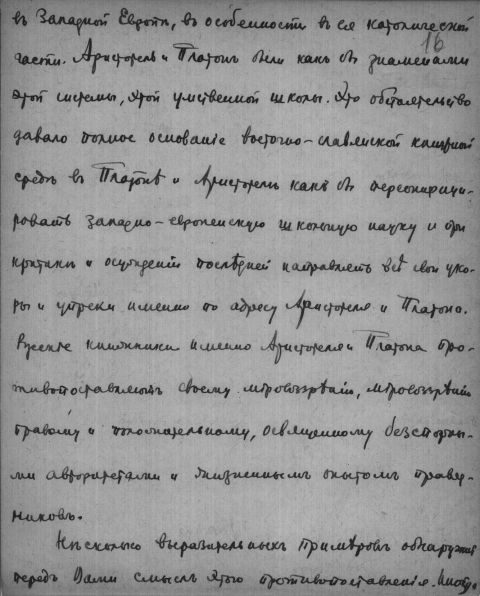 въ Западной Европѣ, въ особенности въ ея католической
16
части. Аристотель и Платонъ были какъ бы знаменами
этой системы, этой умственной школы. Это обстоятельство
давало полное основаніе восточно-славянской книжной
средѣ въ Платонѣ и Аристотелѣ какъ бы персонифици-
ровать западно-европейскую школьную науку и при
критикѣ и осужденіи послѣдней направлять всѣ свои уко-
ры и упреки именно по адресу Аристотеля и Платона.
Русскіе книжники именно Аристотеля и Платона про-
тивопоставляютъ своему міровоззрѣнію, міровоззрѣнію
правому и положительному, освященному безспорны-
ми авторитетами и жизненнымъ опытомъ правед-
никовъ.
Нѣсколько выразительныхъ примѣровъ обнаружатъ
передъ Вами смыслъ этого противопоставленія.